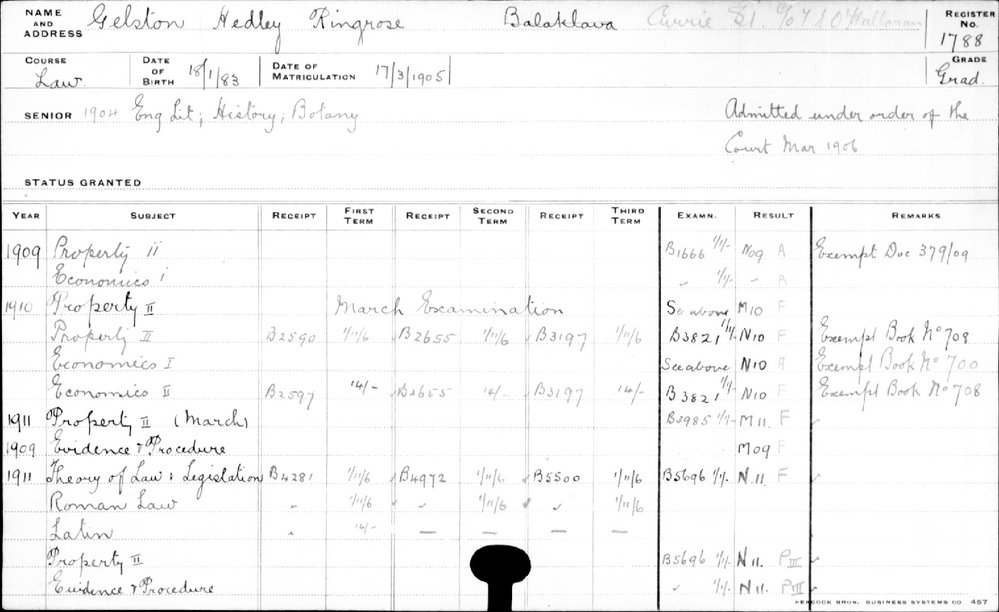 NAME AND ADDRESS Gelston Hedley Ringrose Balaklava Currie St c/o T S O'Halloran REGISTER No. 1788
COURSE Law DATE OF BIRTH 18/1/83 DATE OF MATRICULATION 17/3/1905 GRADE Grad.
SENIOR 1904 Eng Lit; History; Botany Admitted under order of the
Court Mar 1906
STATUS GRANTED
YEAR SUBJECT RECEIPT FIRST TERM RECEIPT SECOND TERM RECEIPT THIRD TERM EXAMN. RESULT REMARKS
1909 Property ii B1666 1/1/- N09 A Exempt Doc 379/09
Economics i " 1/1/- " A
1910 Property II March Examination See above M10 F
Property II B2590 1/11/6 B2655 1/11/6 B3197 1/11/6 B3821 1/1/- N10 F Exempt Book No 708
Economics I See above N10 A Exempt Book No 700
Economics II B2597 14/- B2655 14/- B3197 14/- B3821 1/1/- N10 F Exempt Book No 708
1911 Property II (March) B3985 1/1/- M11. F
1909 Evidence & Procedure M09 F
1911 Theory of Law & Legislation B4281 1/11/6 B4972 1/11/6 B5500 1/11/6 B5696 1/1/- N.11. F
Roman Law " 1/11/6 " 1/11/6 " 1/11/6
Latin " 14/- — — — —
Property II B5696 1/1/- N11. P III
Evidence & Procedure " 1/1/- N11. P III
PEACOCK BROS. BUSINESS SYSTEMS CO 457